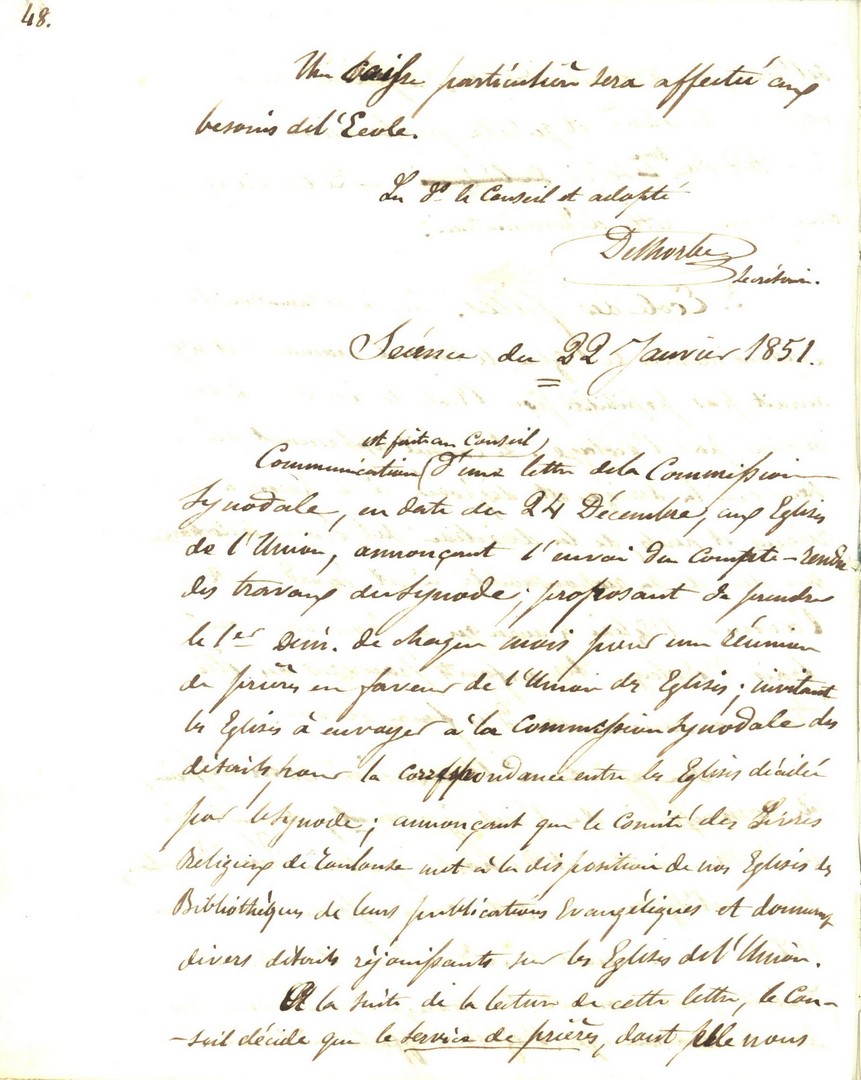 48.
Une caisse particulière sera affectée aux
besoins de l'Ecole.
Lu ds le Conseil et adopté
Secrétaire.
Séance du 22 Janvier 1851.
est fait au Conseil
Communication d'une lettre de la Commission
Synodale, en date du 24 Décembre, aux Eglises
de l'Union, annonçant l'envoi du Compte-rendu
des travaux du Synode; proposant de prendre
le 1er Dim. de chaque mois pour une réunion
de prières en faveur de l'Union des Eglises; invitant
les Eglises à envoyer à la Commission Synodale des
détails pour la correspondance entre les Eglises décidée
par le Synode; annonçant que le Comité des Livres
Religieux de Toulouse met à la disposition de nos Eglises des
Bibliothèques de leurs publications Evangéliques et donnant
divers détails réjouissants sur les Eglises de l'Union.
A la suite de la lecture de cette lettre, le Con-
-seil décide que le service de prières, dont elle nous